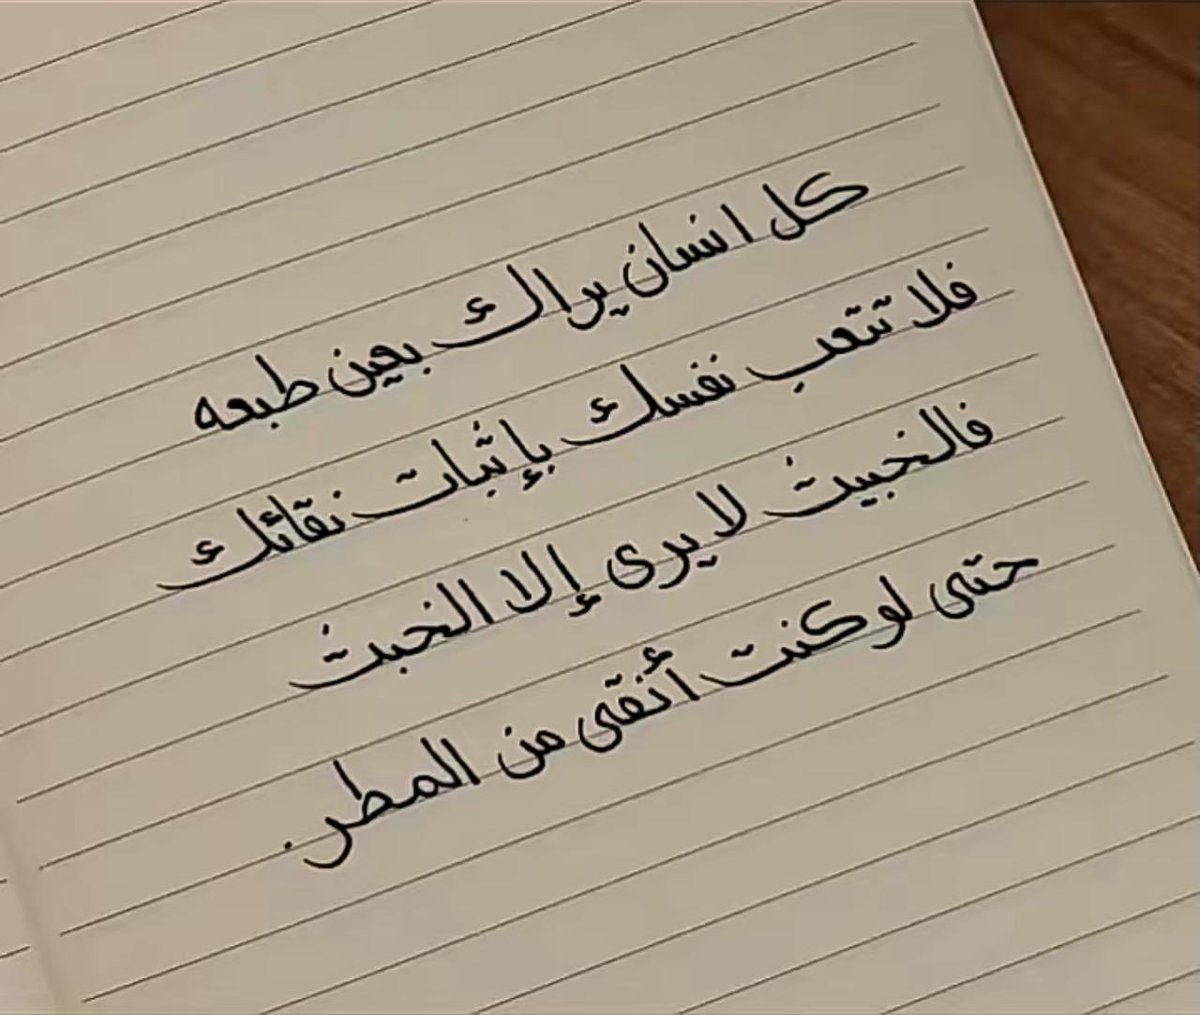 كل انسان يراك بعين طبعه
فلا تتعب نفسك بإثبات نقائك
فالخبيث لا يرى إلا الخبث
حتى لو كنت أنقى من المطر.